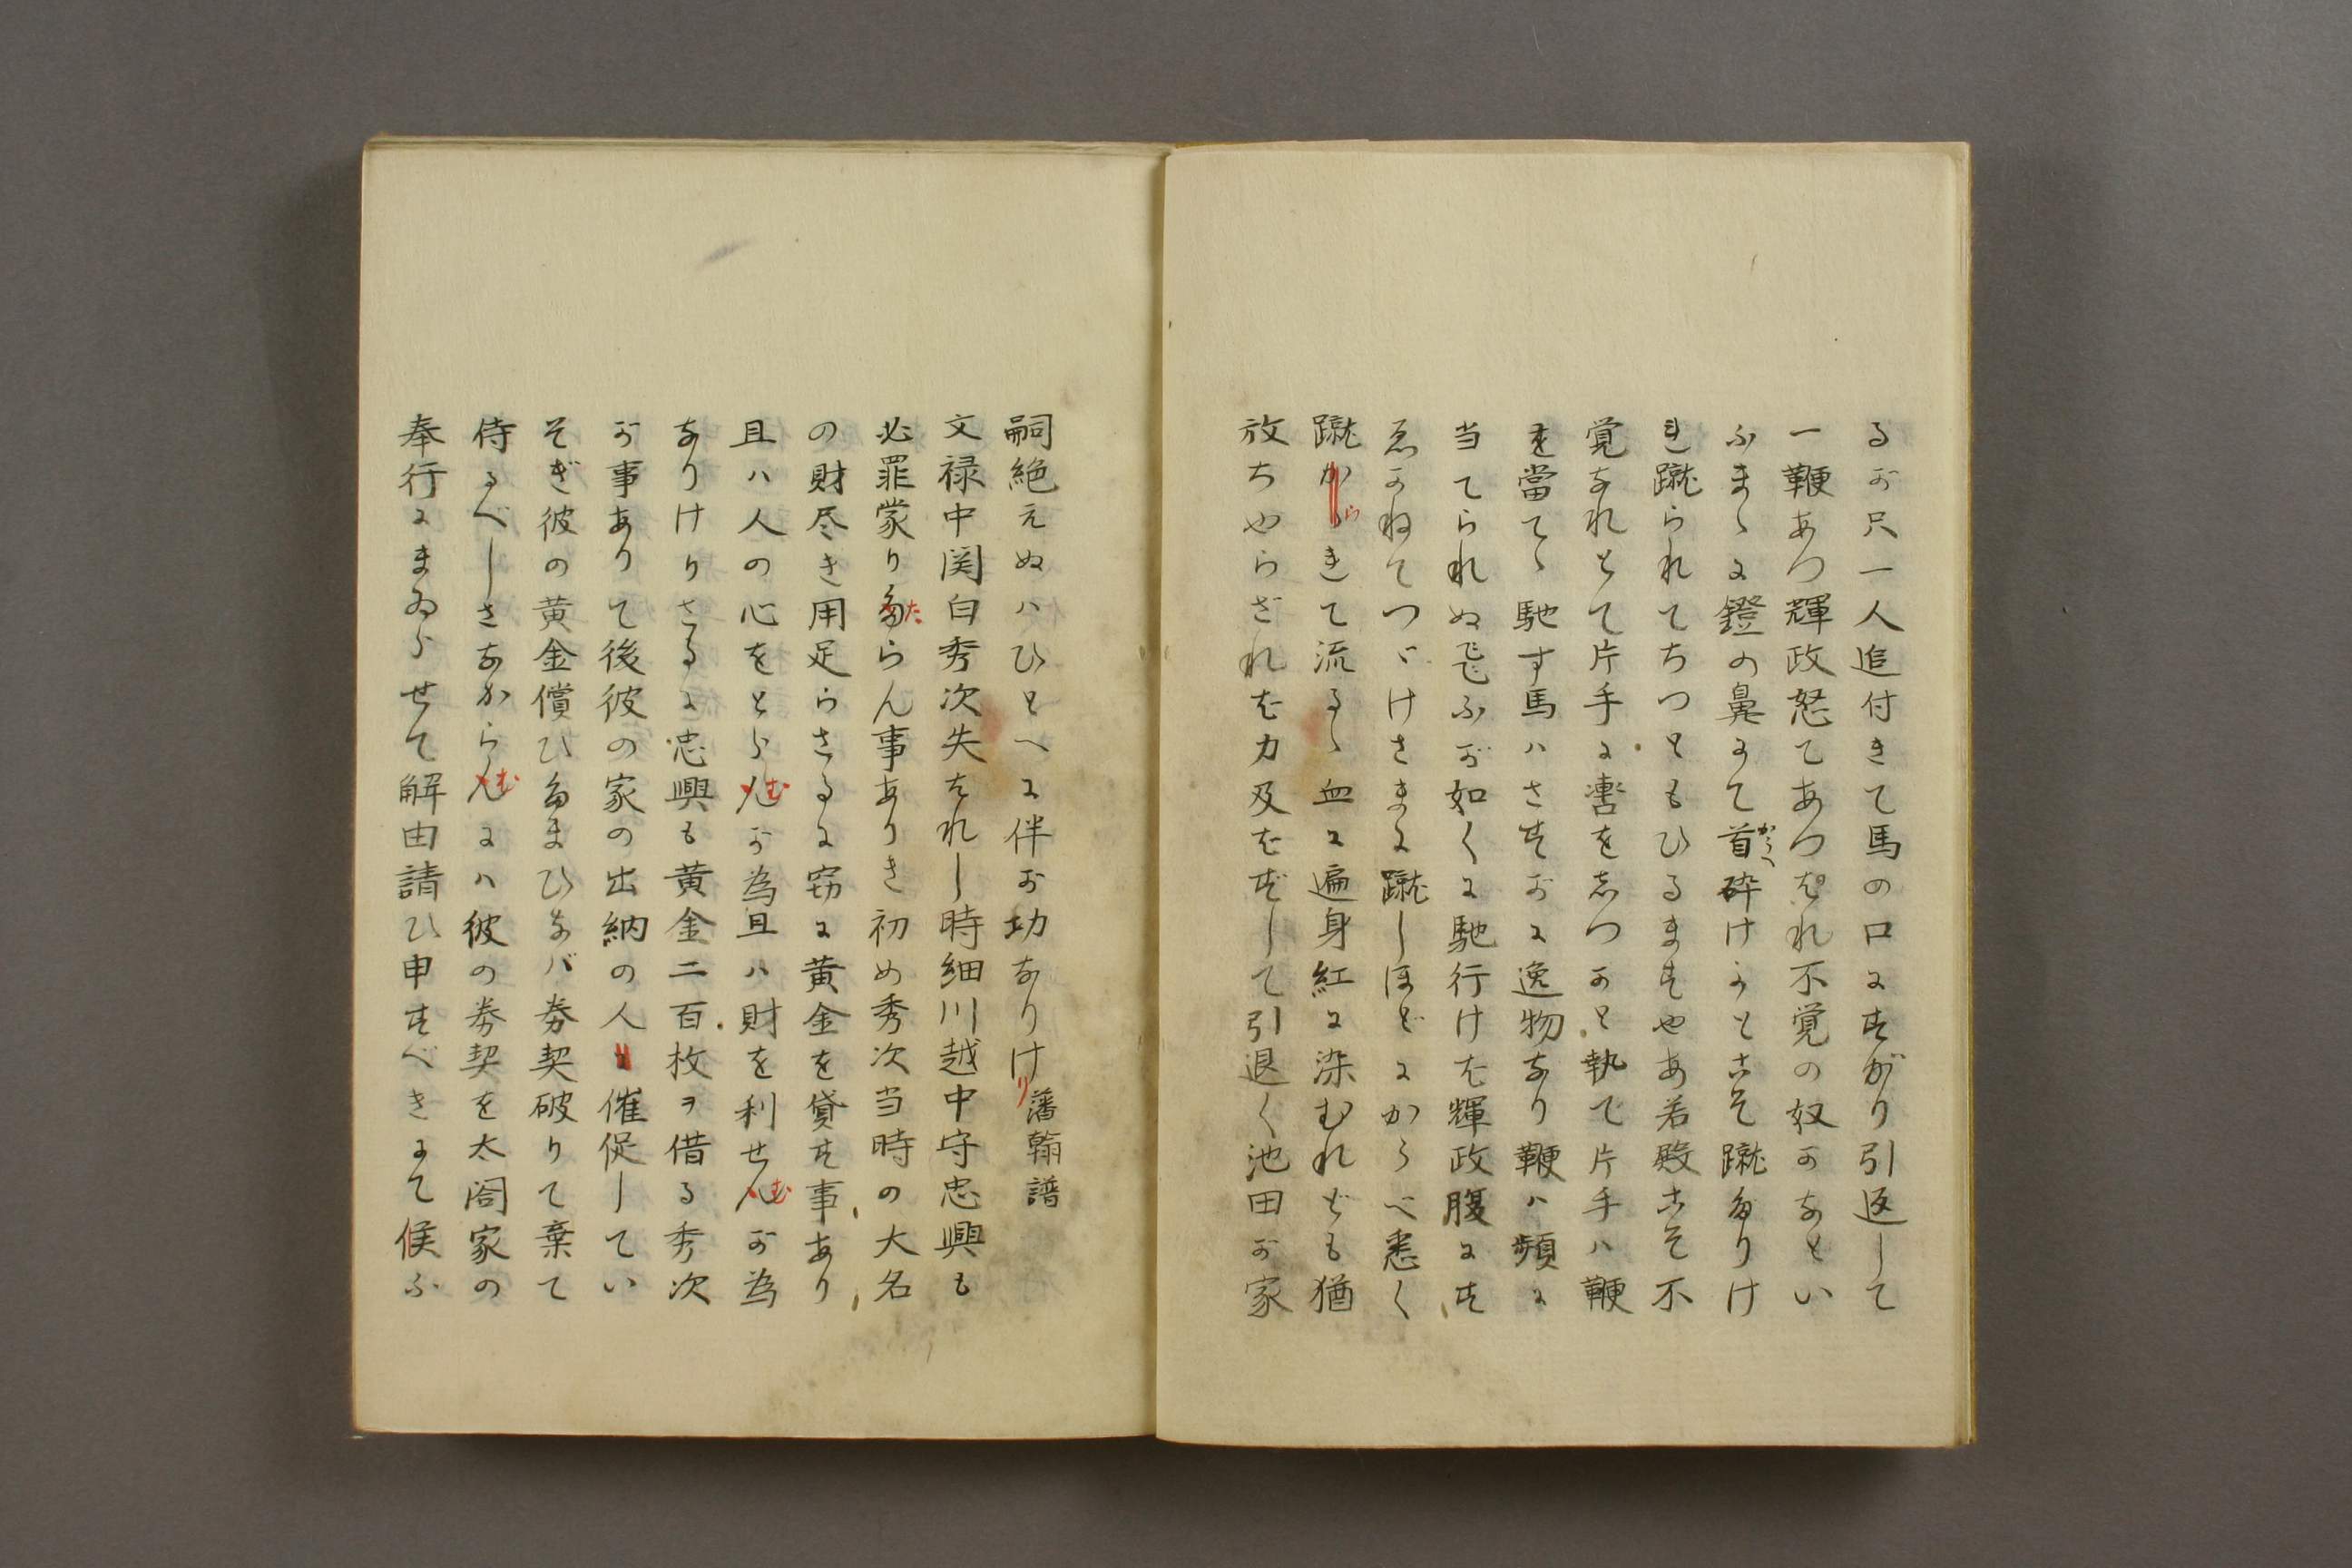 るが只一人追付きて馬の口にすがり引返して
一鞭あつ輝政怒てあつぱれ不覚の奴かなとい
ふまゝに鐙の鼻にて首砕けよとこそ蹴たりけ
れ蹴られてちつともひるまずやあ若殿こそ不
覚なれとて片手に轡をしつかと執て片手ハ鞭
を當てゝ馳す馬ハさすがに逸物なり鞭ハ頻に
当てられぬ飛ふが如くに馳行けば輝政腹にす
ゑかねてつゞけさまに蹴しほどにかうべ悉く
蹴からきて流るゝ血に遍身紅に染むれども猶
放ちやらざれば力及ばずして引退く池田が家
嗣絶えぬハひとへに伴が功なりけり 藩翰譜
文禄中関白秀次失はれし時細川越中守忠興も
必罪蒙りたらん事ありき初め秀次当時の大名
の財尽き用足らさるに窃に黄金を貸す事あり
且ハ人の心をとらむが為且ハ財を利せむが為
ありけりさるに忠興も黄金二百枚ヲ借る秀次
が事ありて後彼の家の出納の人に催促してい
そぎ彼の黄金償ひたまひなバ券契破りて棄て
侍るべしさなからむにハ彼の券契を太閤家の
奉行にまゐらせて解由請ひ申すべきにて候ふ